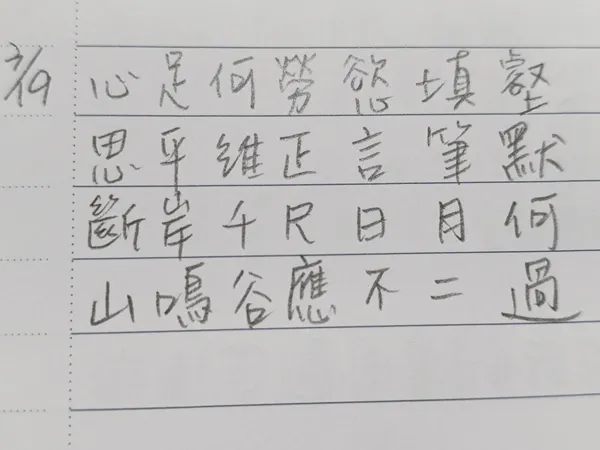 3/19
心足何勞慾填壑
思平維正言筆默
斷岸千尺日月何
山鳴谷應不二過